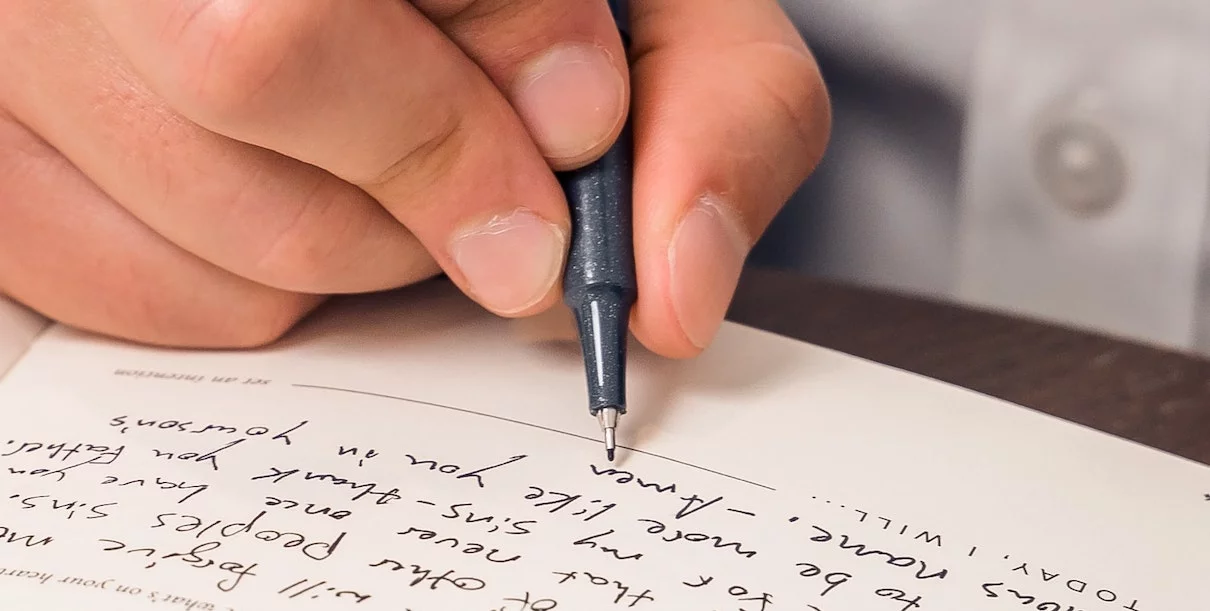 what's on your heart
will forgive
of other peoples sins.
that never once have you
for my sins - thank you Father.
to be more like you in your son's
name. - Amen
TODAY, I WILL...
set an intention